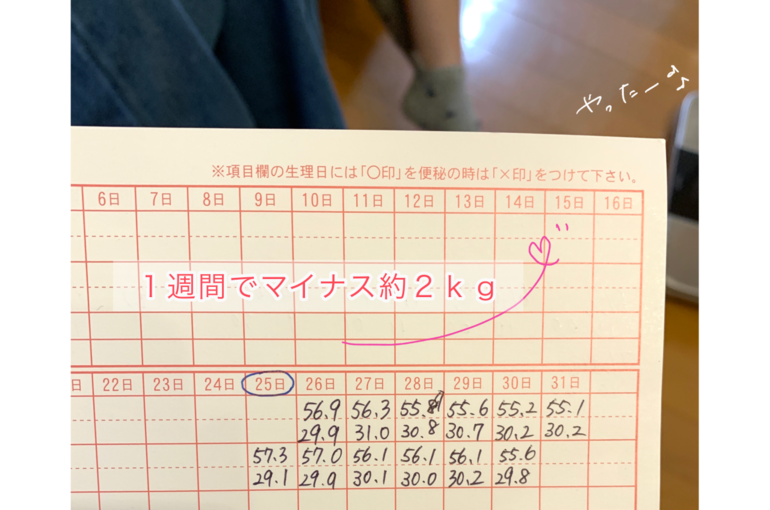 やったーょら
※項目欄の生理日には「〇印」を便秘の時は「×印」をつけて下さい。
6日 7日 8日 9日 10日 11日 12日 13日 14日 15日 16日
1週間でマイナス約2kg
日 22日 23日 24日 25日 26日 27日 28日 29日 30日 31日
56.9 56.3 55.8 55.6 55.2 55.1
29.9 31.0 30.8 30.7 30.2 30.2
57.3 57.0 56.1 56.1 56.1 55.6
29.1 29.9 30.1 30.0 30.2 29.8